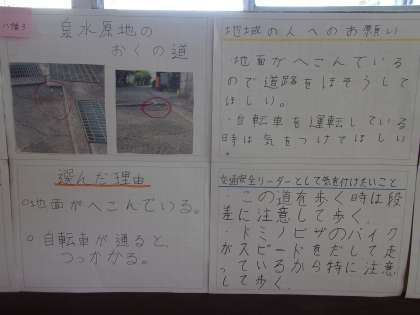 八幡3
泉水原地の
おくの道
選んだ理由
○地面がへこんでいる。
○自転車が通ると、
つっかかる。
地域の人へのお願い
・地面がへこんでいる
ので道路をほそうして
ほしい。
・自転車を運転している
時は気をつけてほしい。
交通安全リーダーとして気を付けたいこと
・この道を歩く時は段
差に注意して歩く。
・ドミノピザのバイク
がスピードをだして走
っているから特に注意
して歩く。